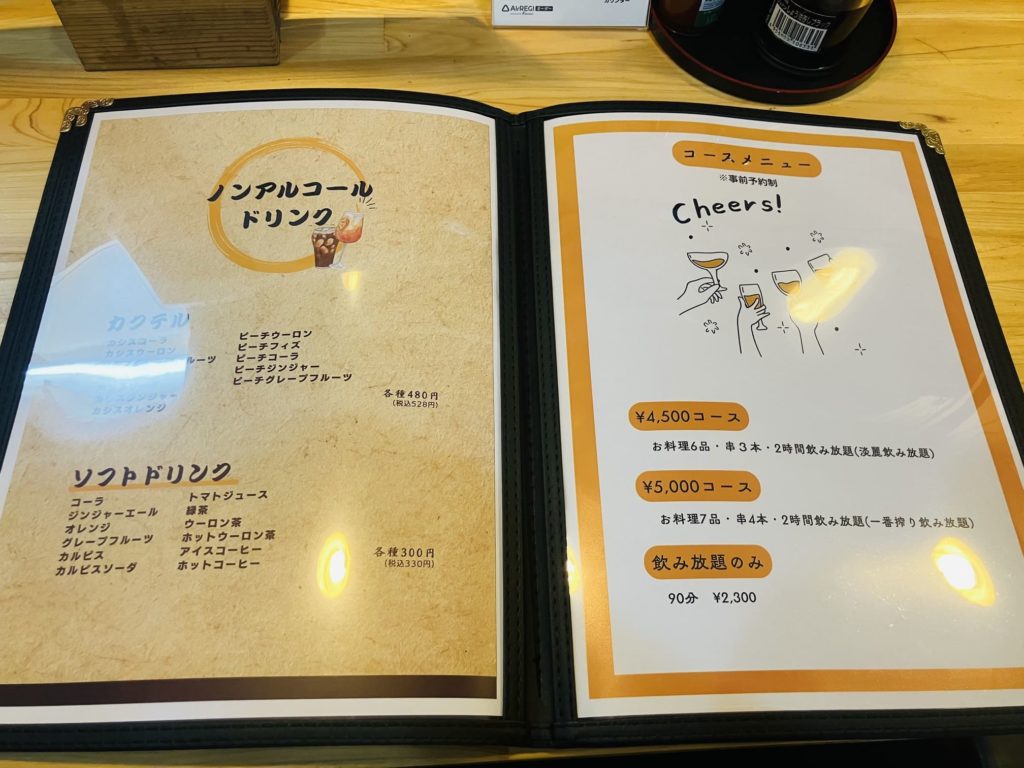 AirREGI オーダー
カウンター
ノンアルコール
ドリンク
カクテル
カシスコーラ
カシスウーロン
ルーツ
カシスジンジャー
カシスオレンジ
ピーチウーロン
ピーチフィズ
ピーチコーラ
ピーチジンジャー
ピーチグレープフルーツ
各種480円
(税込528円)
ソフトドリンク
コーラ
ジンジャーエール
オレンジ
グレープフルーツ
カルピス
カルピスソーダ
トマトジュース
緑茶
ウーロン茶
ホットウーロン茶
アイスコーヒー
ホットコーヒー
各種300円
(税込330円)
コースメニュー
※事前予約制
Cheers!
¥4,500コース
お料理6品・串3本・2時間飲み放題(淡麗飲み放題)
¥5,000コース
お料理7品・串4本・2時間飲み放題(一番搾り飲み放題)
飲み放題のみ
90分 ¥2,300